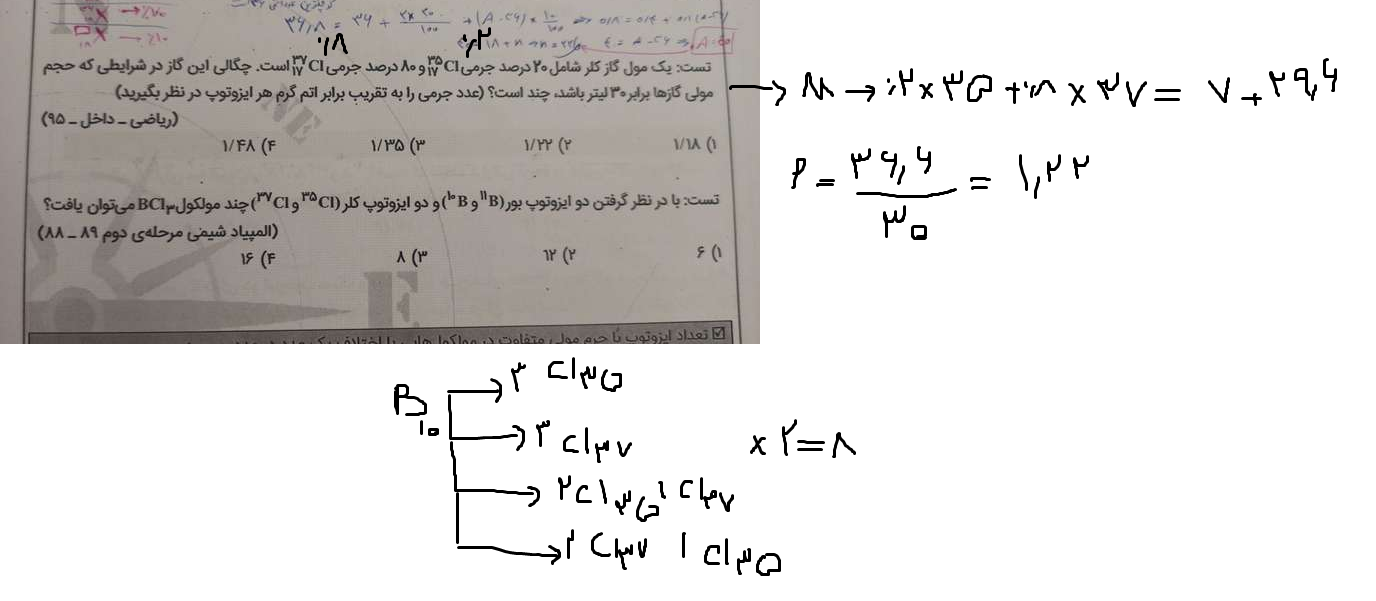 ۳۶٫۸ = ۳۶ + ۲×۲۰/۱۰۰ + (A-۳۶) × ۱۰/۱۰۰
A=۴۰
٪۸ ٪۲
تست: یک مول گاز کلر شامل ۲۰ درصد جرمی ³⁵₁₇Cl و ۸۰ درصد جرمی ³⁷₁₇Cl است. چگالی این گاز در شرایطی که حجم
مولی گازها برابر ۳۰ لیتر باشد، چند است؟ (عدد جرمی را به تقریب برابر اتم گرم هر ایزوتوپ در نظر بگیرید)
(ریاضی ـ داخل ـ ۹۵)
۱) ۱/۱۸ ۲) ۱/۲۲ ۳) ۱/۳۵ ۴) ۱/۴۸
M → ۰٫۲×۳۵ + ۰٫۸ × ۳۷ = ۷ + ۲۹٫۶
P = ۳۶٫۶/۳۰ = ۱٫۲۲
تست: با در نظر گرفتن دو ایزوتوپ بور (¹¹B و ¹⁰B) و دو ایزوتوپ کلر (³⁵Cl و ³⁷Cl) چند مولکول BCl₃ می‌توان یافت؟
(المپیاد شیمی مرحله‌ی دوم ۸۹ ـ ۸۸)
۱) ۶ ۲) ۱۲ ۳) ۸ ۴) ۱۶
تعداد ایزوتوپ با جرم مولی متفاوت در مولکول‌هایی با اختلاف یک
B۱۰ → ۳ Cl۳۵
→ ۳ Cl۳۷ × ۲ = ۸
→ ۲Cl۳۵ ۱ Cl۳۷
→ ۲ Cl۳۷ ۱ Cl۳۵